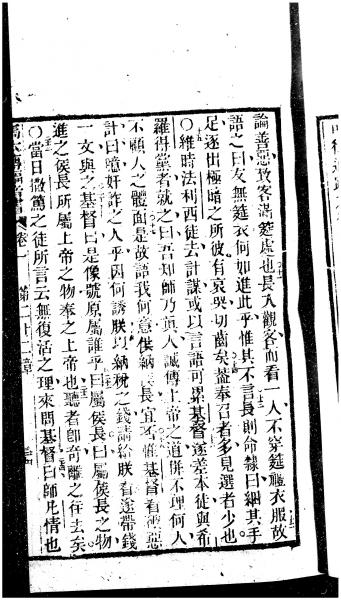 論善惡致客滿筵處也長入觀客而看一人不穿筵禮衣服故
語之曰友無筵衣何如進此乎惟其不言長則命隸曰綑其手
足逐出極暗之所彼有哀哭切齒矣蓋奉召者多見選者少也
○維時法利西徒去計謀或以言語可累基督遂差本徒與希
羅得黨者就之曰吾知師乃真人誠傳上帝之道併不理何人
不願人之體面是故語我何意供納長宜否惟基督看破惡
計曰噫奸詐之人乎因何誘朕以納稅之錢請給朕看遂帶錢
一文與之基督曰是像號原屬誰乎曰屬侯長曰屬侯長之物
進之侯長所屬上帝之物奉之上帝也聽者卽奇離之往去矣
○當日撒篤之徒所言云無復活之理來問基督曰師凡情也
卷一 第二十二章